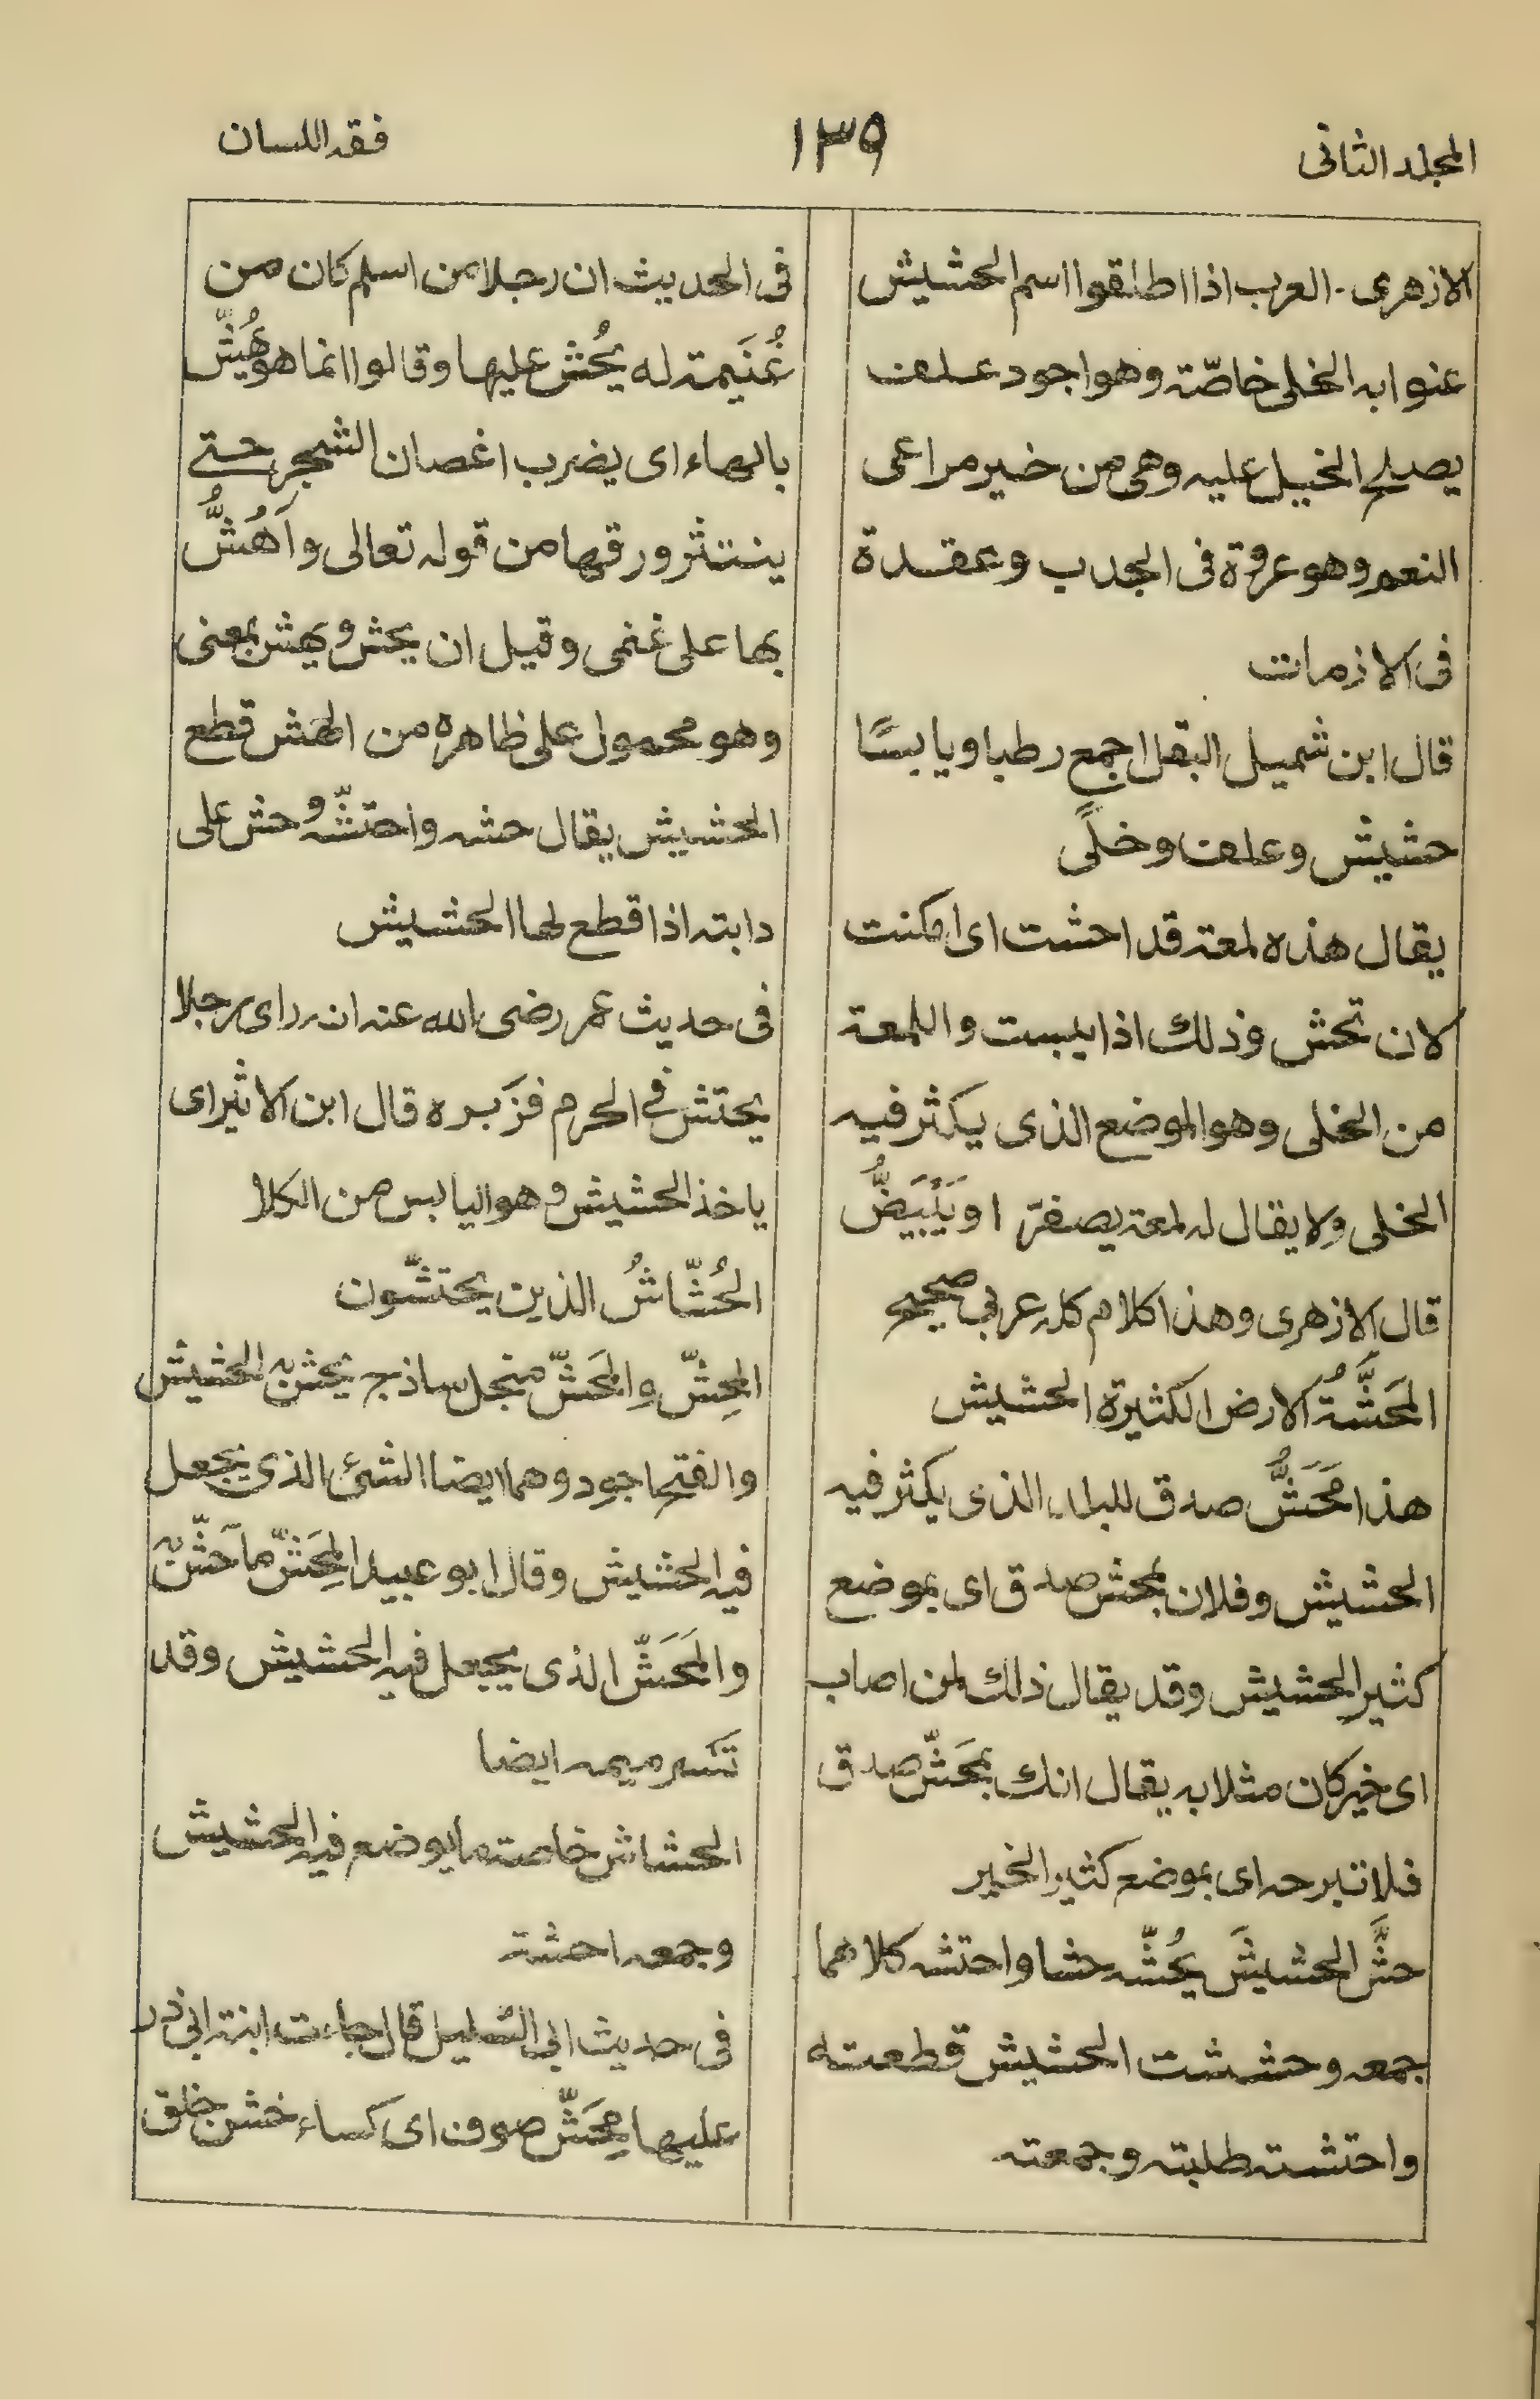 المجلد الثانى
١٣٩
فقه اللسان
الازهرى . العرب اذا اطلقوا اسم الحشيش
عنوا به الخلى خاصّة وهو اجود علف
يصلح الخيل عليه وهى من خير مراعى
النعم وهو عروة فى الجدب وعقدة
فى الازمات
قال ابن شميل البقل اجمع رطبا ويابسًا
حشيش وعلف وخلًى
يقال هذه لمعة قد احشت اى امكنت
لان تحش وذلك اذا يبست واللمعة
من الخلى وهو الموضع الذى يكثر فيه
الخلى ولا يقال له لمعة يصفرّ او يَبْيَضُّ
قال الازهرى وهذا كلام كله عربى صحيح
المَحَشَّةُ الارض الكثيرة الحشيش
هذا مَحَشُّ صدق للبلد الذى يكثر فيه
الحشيش وفلان بمحش صدق اى بموضع
كثير الحشيش وقد يقال ذلك لمن اصاب
اى خير كان مثلا به يقال انك بمَحَشّ صدق
فلا تبرحه اى بموضع كثير الخير
حشَّ الحشيشَ يحُشّه حشا واحتشه كلاهما
جمعه وحششت الحشيش قطعته
واحتششته طلبته وجمعته
فى الحديث ان رجلا من اسلم كان من
غُنَيمة له يحُش عليها وقالوا انما هو يهُشّ
بالهاء اى يضرب اغصان الشجر حتے
ينتثر ورقها من قوله تعالى وَاَهُشُّ
بها على غنمى وقيل ان يحش ويهش بمعنى
وهو محمول على ظاهره من الحش قطع
الحشيش يقال حشه واحتشّه وحش على
دابته اذا قطع لها الحشيش
فى حديث عمر رضى الله عنه انه راى رجلا
يحتش فے الحرم فزَبره قال ابن الاثير اى
ياخذ الحشيش وهو اليابس من الكلا
الحُشّاشُ الذين يحتشّون
المِحشّ والمَحَشّ منجل ساذج يحش به الحشيش
والفتح اجود وهما ايضا الشئ الذى يجعل
فيه الحشيش وقال ابو عبيد المِحَشّ ما حَشّ به
والمَحَشّ الذى يجعل فيه الحشيش وقد
تكسر ميمه ايضا
الحشاش خاصة ما يوضع فيه الحشيش
وجمعه احشة
فى حديث ابى السليل قال جاءت ابنة ابى ذر
عليها مِحَشّ صوف اى كساء خشن خلق